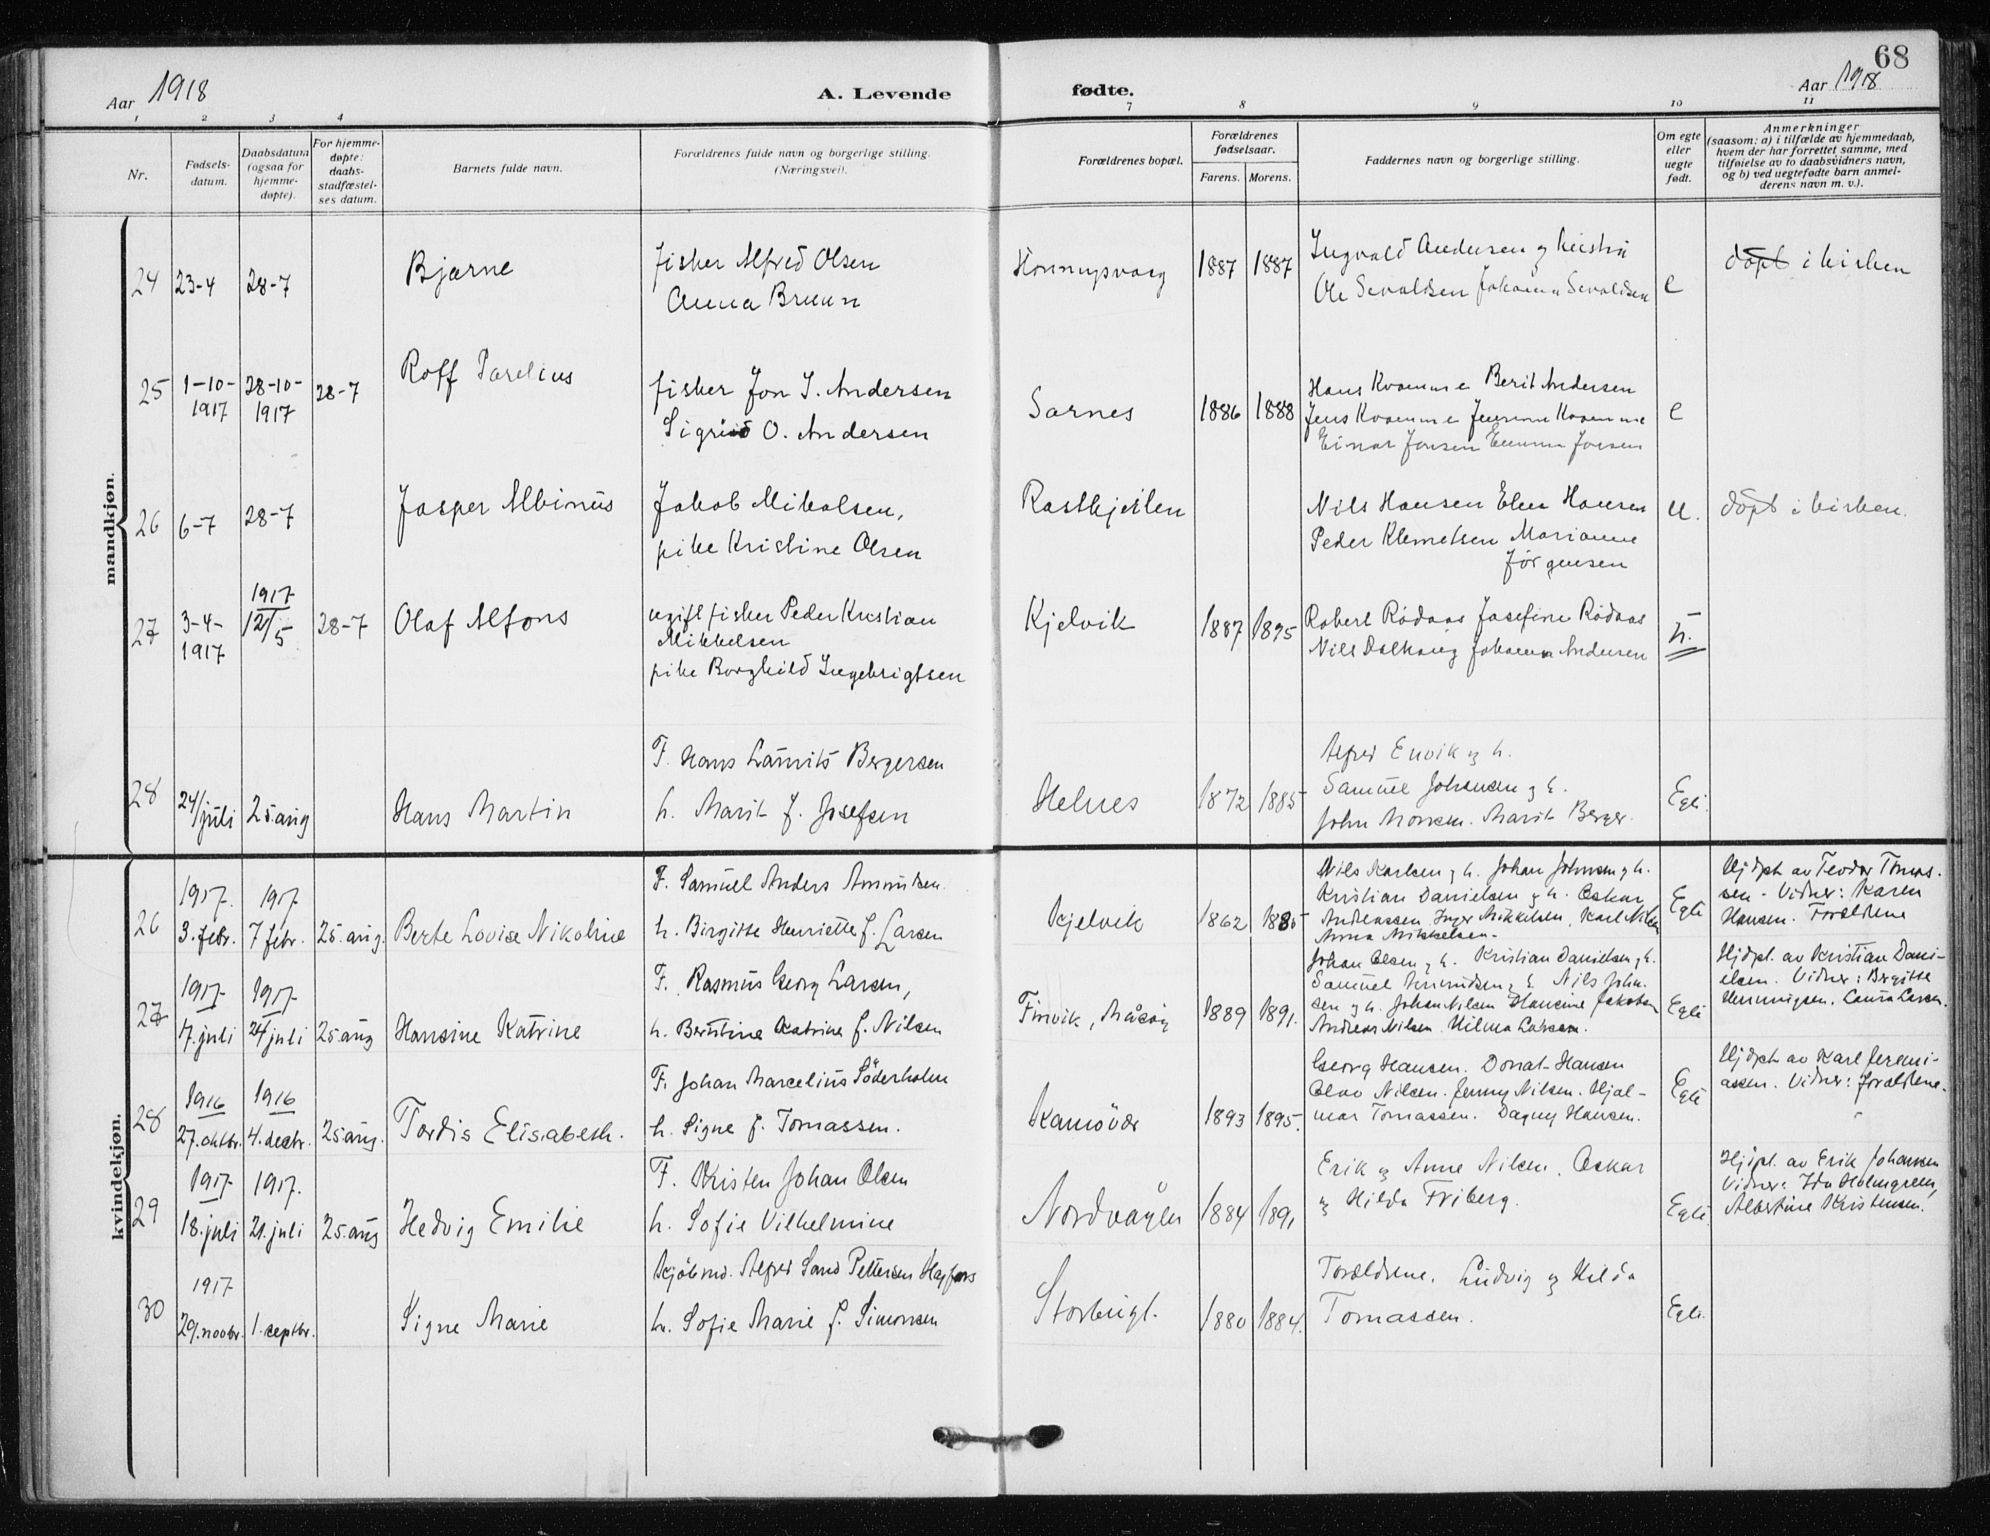 68
Aar 1918
A. Levende fødte.
Aar 1918
1 2 3 4 7 8 9 10 11
Nr.
Fødsels-
datum.
Daabsdatum
(ogsaa for
hjemme-
døpte).
For hjemme-
døpte:
daabs-
stadfæstel-
ses datum.
Barnets fulde navn.
Forældrenes fulde navn og borgerlige stilling.
(Næringsvei).
Forældrenes bopæl.
Forældrenes
fødselsaar.
Farens. Morens.
Faddernes navn og borgerlige stilling.
Om egte
eller
uegte
født.
Anmerkninger
(saasom: a) i tilfælde av hjemmedaab,
hvem der har forrettet samme, med
tilføielse av to daabsvidners navn,
og b) ved uegtefødte barn anmel-
derens navn m. v.).
mandkjøn.
24 23-4 28-7
Bjarne
fisker Alfred Olsen
Anna Bruun
Honningsvaag
1887 1887
Ingvald Andersen og
Ole Sevaldsen Johanna Sevaldsen
e
døpt i kirken
25
1-10-
1917
28-10-
1917
28-7
Rolf Parelius
fisker Jon I. Andersen
Sigrid O. Andersen
Sarnes
1886 1888
Hans Kvamme Berit Andersen
Jens Kvamme Kvamme
Einar Jensen Jensen
e
26 6-7 28-7
Jasper Albinus
Jakob Mikalsen,
pike Kristine Olsen
1917
Nils Hansen Elen Hansen
Peder Klemetsen Marianne
Jørgensen
u.
døpt i kirken.
27
3-4-
1917
12/5
28-7
Olaf Alfons
ugift fisker Peder Kristian
Mikkelsen
pike Borghild Ingebrigtsen
Kjelvik
1887 1895
Robert Rødaas Josefine Rødaas
Nils Johanna Andersen
u.
28 24/juli 25. aug
Hans Martin
F. Hans Bergersen
h. Marit f. Josefsen
Helnes
1872 1885
Alfred Envik og h.
Samuel Johansen og h.
John Monsen. Marit Berger.
Egte.
kvindekjøn.
26
1917.
3. febr.
1917
7 febr.
25. aug.
Berte Lovise Nikoline
F. Samuel Anders Amundsen.
h. Birgitte Henriette f. Larsen
Kjelvik
1862 1885
Nils Karlsen og h. Johan Johnsen og h.
Kristian Danielsen og h. Oskar
Andreassen Inger Mikkelsen, Karl Nilsen
Anna Mikkelsen.
Egte
Hjdpt. av Teodor Tomas-
sen. Vidner: Karen
Hansen. Forældrene
27
1917
7. juli
1917.
24 juli
25 aug
Hansine Katrine
F. Rasmus Georg Larsen,
h. Berntine Katrine f. Nilsen
Finvik, Måsøy
1889 1891.
Johan Olsen og h. Kristian Danielsen og h.
Samuel Amundsen og h. Nils John-
sen og h. Johan Nilsen Hansine Jakobsen
Andreas Nilsen. Hilma Larsen.
Egte
Hjdpt. av Kristian Dani-
elsen. Vidner: Birgitte
Henningsen. Laura Larsen.
28
1916
27. oktbr.
1916
4. decbr.
25 aug.
Tordis Elisabeth.
F. Johan Marcelius Söderholm
h. Signe f. Tomassen.
Kamøvær
1893 1895.
Georg Hansen. Donat Hansen
Olav Nilsen. Jenny Nilsen. Hjal-
mar Tomassen. Dagny Hansen.
Egte
Hjdpt. av Karl Jeremi-
assen. Vidner: forældrene.
29
1917
18. juli
1917.
21. juli
25. aug
Hedvig Emilie
F. Kristen Johan Olsen
h. Sofie Vilhelmine
Nordvågen
1884 1891
Erik og Anne Nilsen. Oskar
og Hilda Friberg.
Egte
Hjdpt. av Erik Johansen
Vidner: Ida Holmgreen,
Albertine Kristensen.
30
1917
29. novbr.
1. septbr.
Signe Marie
Kjöbmd. Alfred Sand Pettersen Hagfors
h. Sofie Marie f. Simonsen
Storbugt.
1880 1884.
Forældrene. Ludvig og Hilda
Tomassen.
Egte.